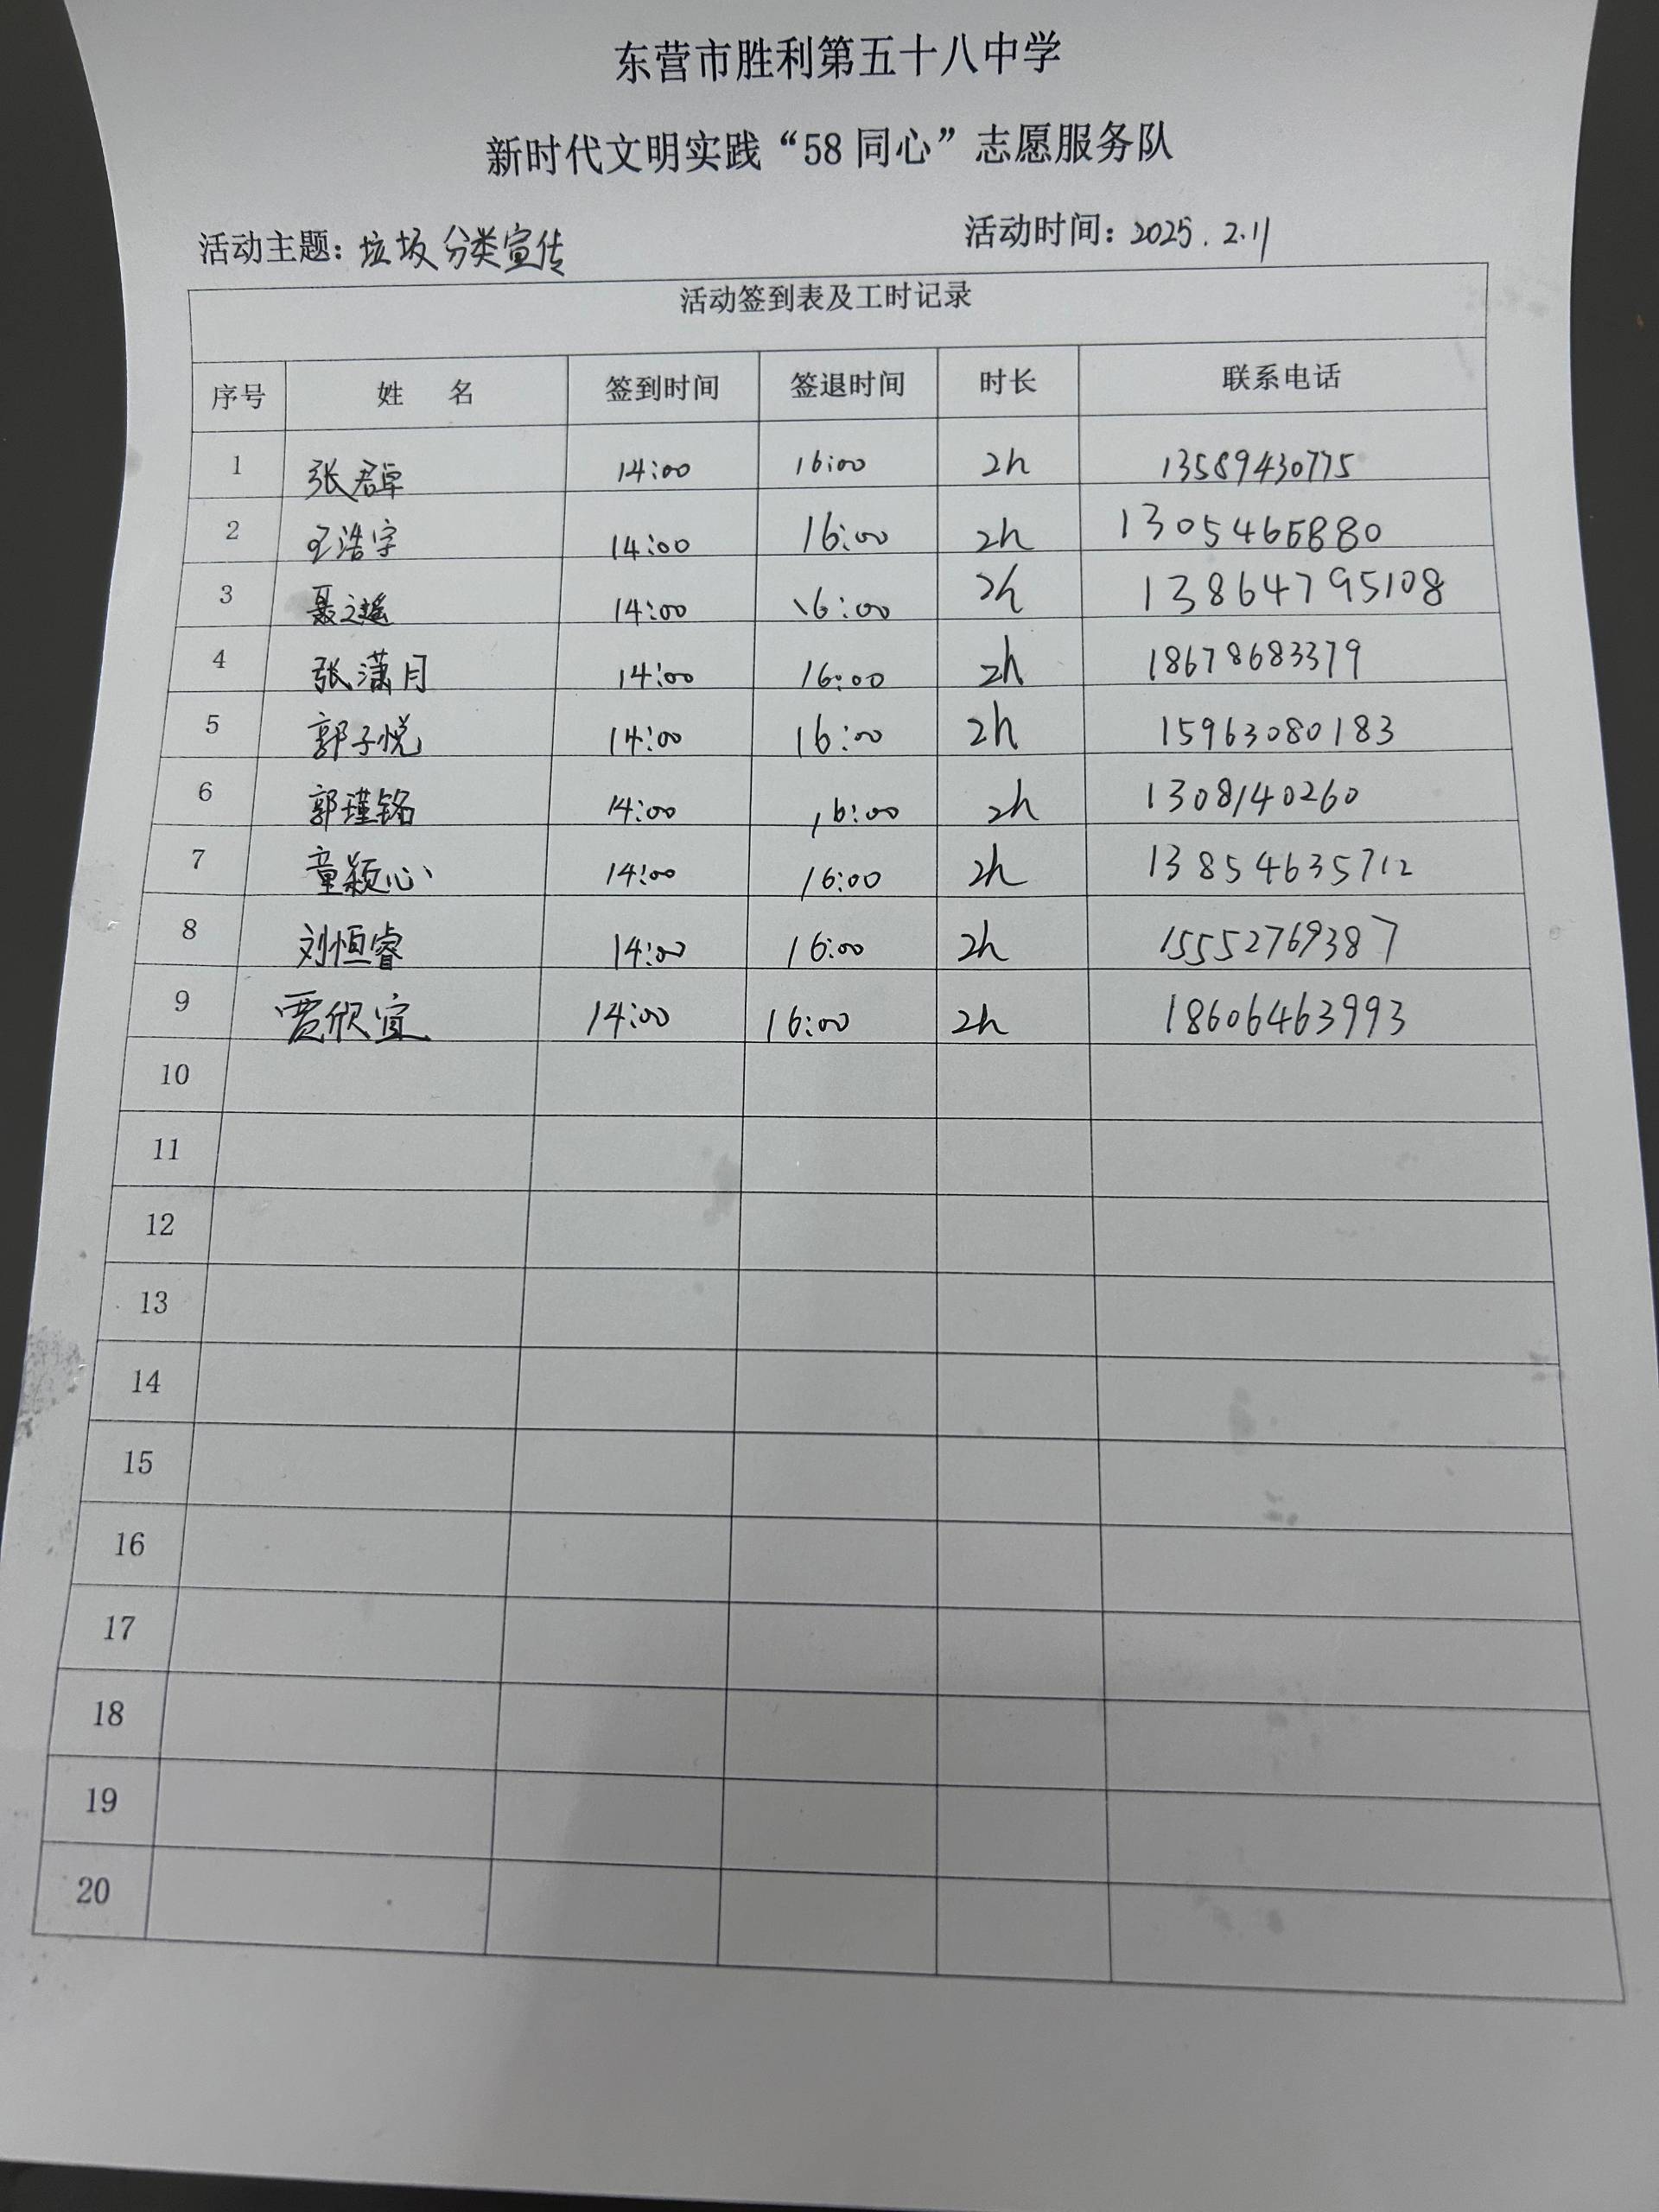 东营市胜利第五十八中学
新时代文明实践“58同心”志愿服务队
活动主题：垃圾分类宣传 活动时间：2025.2.11
活动签到表及工时记录
序号 姓 名 签到时间 签退时间 时长 联系电话
1 张君卓 14:00 16:00 2h 13589430775
2 王浩宇 14:00 16:00 2h 1305466880
3 聂之遥 14:00 16:00 2h 13864795108
4 张潇月 14:00 16:00 2h 18678683379
5 郭子悦 14:00 16:00 2h 15963080183
6 郭瑾铭 14:00 16:00 2h 1308140260
7 童颖心 14:00 16:00 2h 13854635712
8 刘恒睿 14:00 16:00 2h 15552769387
9 贾欣宜 14:00 16:00 2h 18606463993
10
11
12
13
14
15
16
17
18
19
20